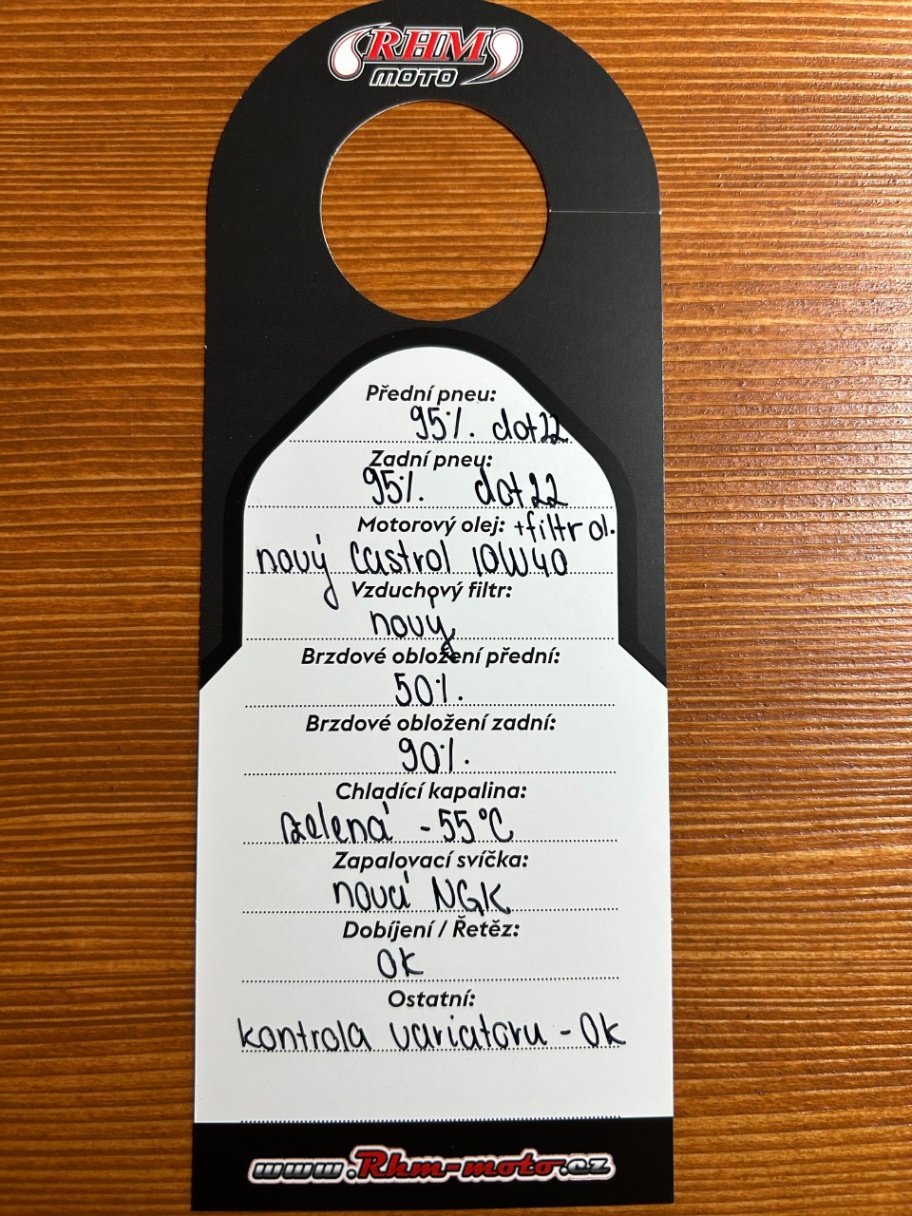 RHM
MOTO
Přední pneu:
95%. dot22
Zadní pneu:
95%. dot22
Motorový olej: +filtr ol.
nový Castrol 10W40
Vzduchový filtr:
nový
Brzdové obložení přední:
50%.
Brzdové obložení zadní:
90%.
Chladící kapalina:
zelená -55°C
Zapalovací svíčka:
nová NGK
Dobíjení / Řetěz:
OK
Ostatní:
kontrola variatoru - Ok
www.Rhm-moto.cz